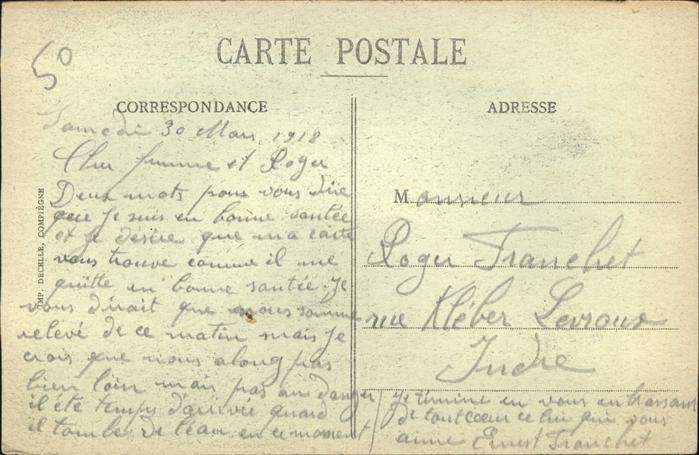 50
CARTE POSTALE
CORRESPONDANCE
ADRESSE
Samedi 30 Mars 1918
Cher femme et Roger
Deux mots pour vous dire
que je suis en bonne santée
et je désire que ma carte
vous trouve comme il me
quitte en bonne santée. Je
vous dirait que nous somme
relevé de ce matin mais je
crois que nous along pas
bien loin mais pas au danger
il été temps d'arrivée quand
il tombe de l'eau en ce moment
Je termine en vous embrassant
de tout cœur celui qui vous
aime Ernest Franchet
Monsieur
Roger Franchet
rue Kléber Levroux
Indre
IMP. DECELLE, COMPIÈGNE